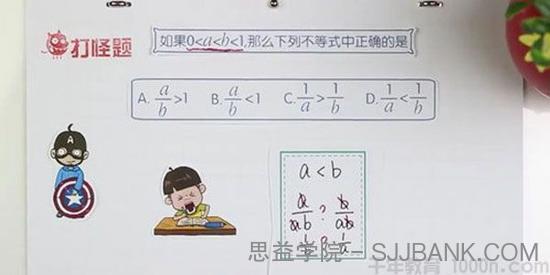 打怪题
如果0<a<b<1,那么下列不等式中正确的是
A. a/b>1 B. a/b<1 C. 1/a>1/b D. 1/a<1/b
A
a<b
a/ab ? b/ab
1/b ? 1/a
思益学院-SJJBANK.COM
千年教育 1000n.com